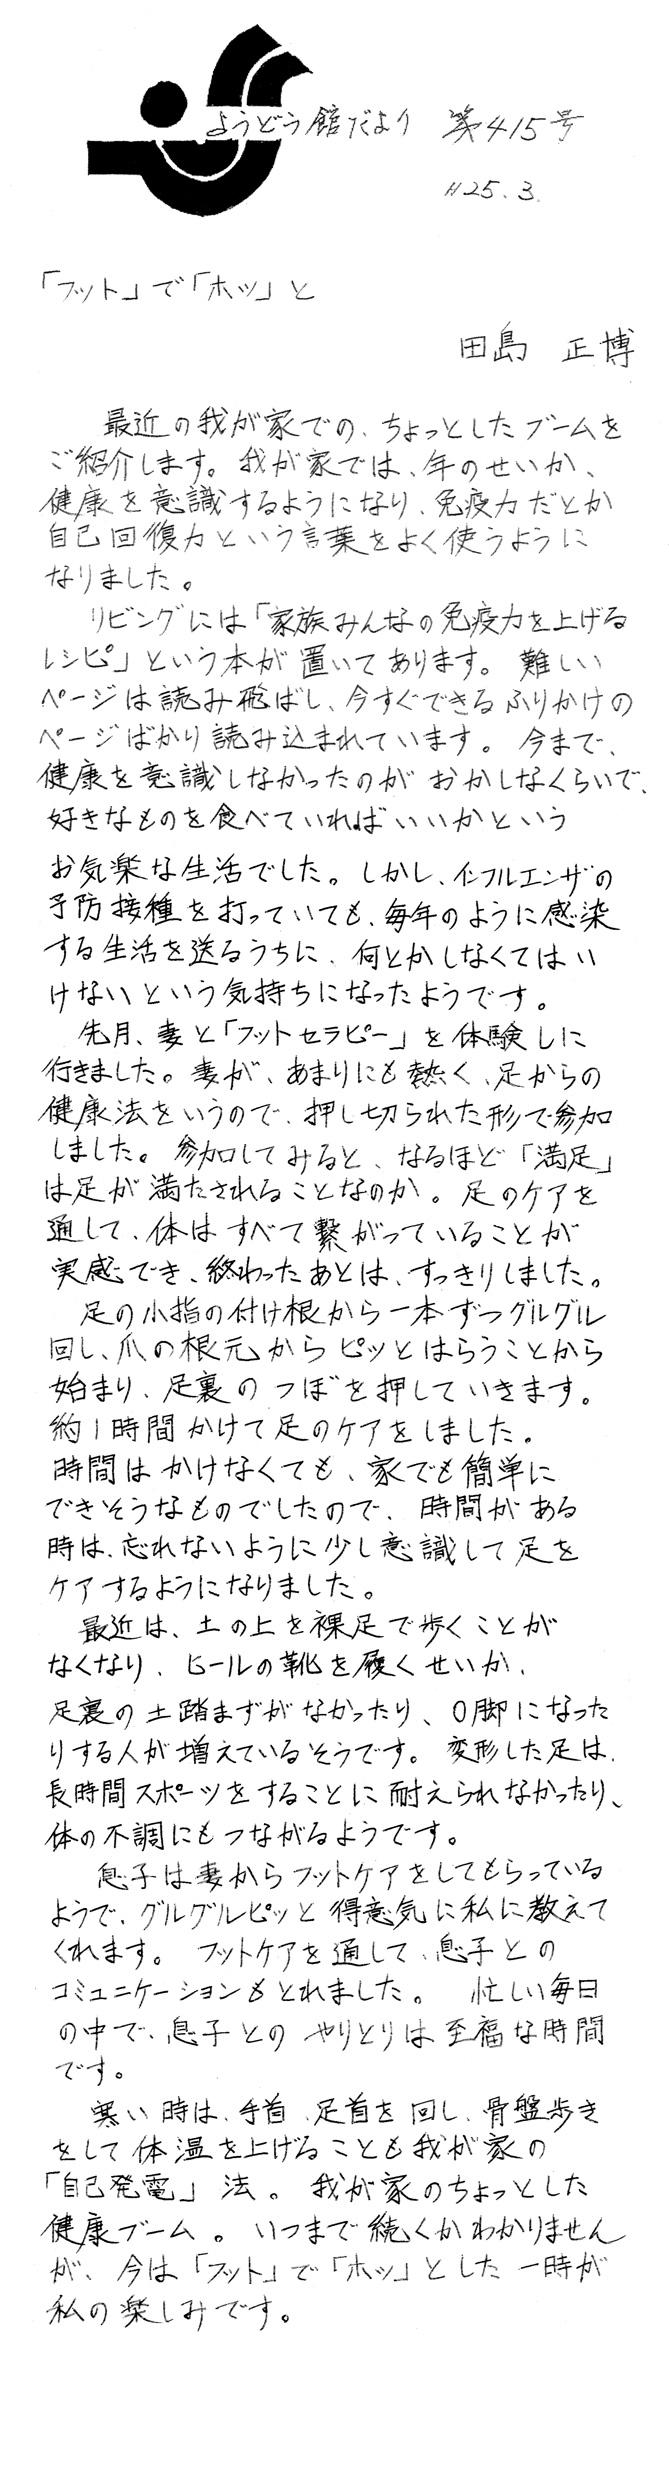 ようどう館だより 第415号
H25.3.
「フット」で「ホッ」と
田島 正博
最近の我が家での、ちょっとしたブームを
ご紹介します。我が家では、年のせいか、
健康を意識するようになり、免疫力だとか
自己回復力という言葉をよく使うように
なりました。
リビングには「家族みんなの免疫力を上げる
レシピ」という本が置いてあります。難しい
ページは読み飛ばし、今すぐできるふりかけの
ページばかり読み込まれています。今まで、
健康を意識しなかったのがおかしなくらいで、
好きなものを食べていればいいかという
お気楽な生活でした。しかし、インフルエンザの
予防接種を打っていても、毎年のように感染
する生活を送るうちに、何とかしなくてはい
けないという気持ちになったようです。
先月、妻と「フットセラピー」を体験しに
行きました。妻が、あまりにも熱く、足からの
健康法をいうので、押し切られた形で参加
しました。参加してみると、なるほど「満足」
は足が満たされることなのか。足のケアを
通して、体はすべて繋がっていることが
実感でき、終わったあとは、すっきりしました。
足の小指の付け根から一本ずつグルグル
回し、爪の根元からピッとはらうことから
始まり、足裏のつぼを押していきます。
約1時間かけて足のケアをしました。
時間はかけなくても、家でも簡単に
できそうなものでしたので、時間がある
時は、忘れないように少し意識して足を
ケアするようになりました。
最近は、土の上を裸足で歩くことが
なくなり、ヒールの靴を履くせいか、
足裏の土踏まずがなかったり、O脚になった
りする人が増えているそうです。変形した足は、
長時間スポーツをすることに耐えられなかったり、
体の不調にもつながるようです。
息子は妻からフットケアをしてもらっている
ようで、グルグルピッと得意気に私に教えて
くれます。フットケアを通して、息子との
コミュニケーションもとれました。忙しい毎日
の中で、息子とのやりとりは至福な時間
です。
寒い時は、手首、足首を回し、骨盤歩き
をして体温を上げることも我が家の
「自己発電」法。我が家のちょっとした
健康ブーム。いつまで続くかわかりません
が、今は「フット」で「ホッ」とした一時が
私の楽しみです。